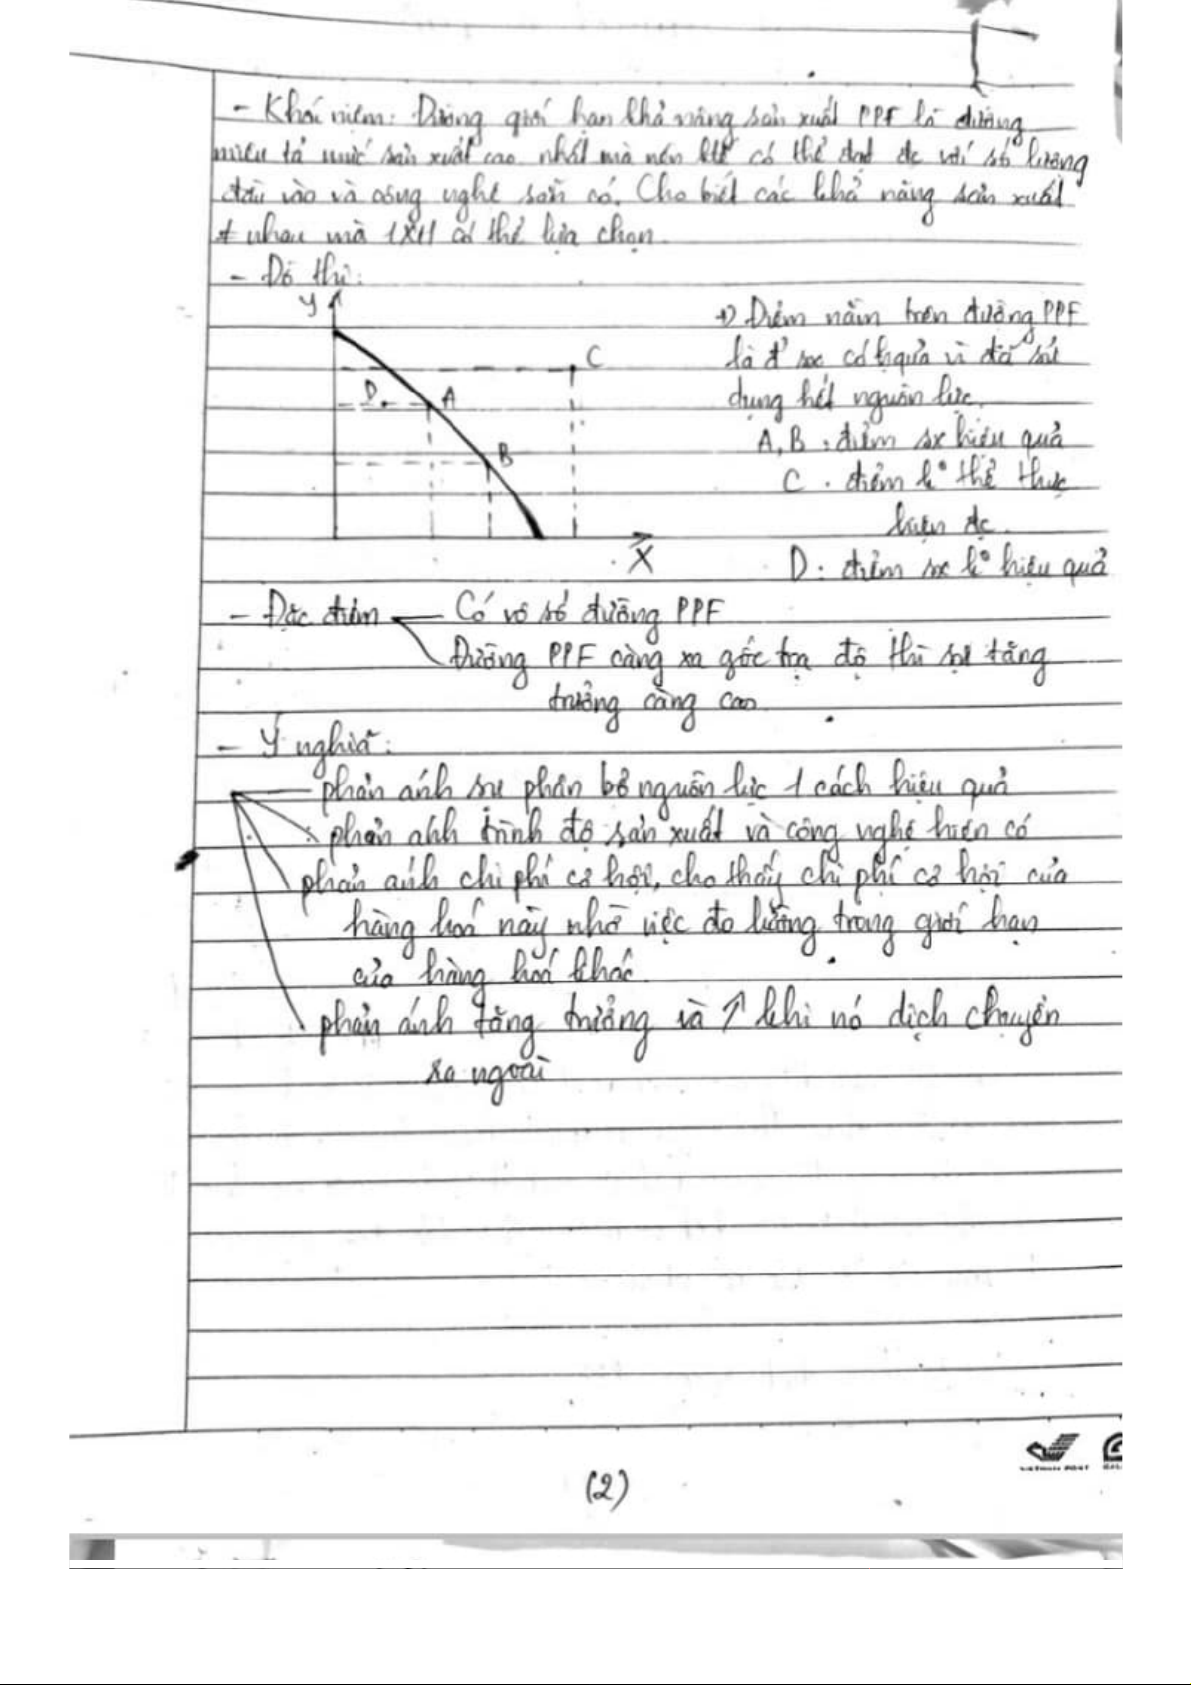 - Khái niệm: Đường giới hạn khả năng sản xuất PPF là đường
miêu tả mức sản xuất cao nhất mà nền ktế có thể đạt đc với số lượng
đầu vào và công nghệ sẵn có. Cho biết các khả năng sản xuất
≠ nhau mà 1XH có thể lựa chọn.
- Đồ thị:
Y
C
D.
A
B
X
Điểm nằm trên đường PPF
là đ' sx có hquả vì đã sử
dụng hết nguồn lực.
A, B : điểm sx hiệu quả
C . điểm k° thể thực
hiện đc.
D : điểm sx k° hiệu quả
- Đặc điểm
Có vô số đường PPF
Đường PPF càng xa gốc tọa độ thì sự tăng
trưởng càng cao.
- Ý nghĩa:
phản ánh sự phân bổ nguồn lực 1 cách hiệu quả
phản ánh trình độ sản xuất và công nghệ hiện có
phản ánh chi phí cơ hội, cho thấy chi phí cơ hội của
hàng hoá này nhờ việc đo lường trong giới hạn
của hàng hoá khác.
phản ánh tăng trưởng và ↑ khi nó dịch chuyển
ra ngoài
VIETNAM POST
(2)